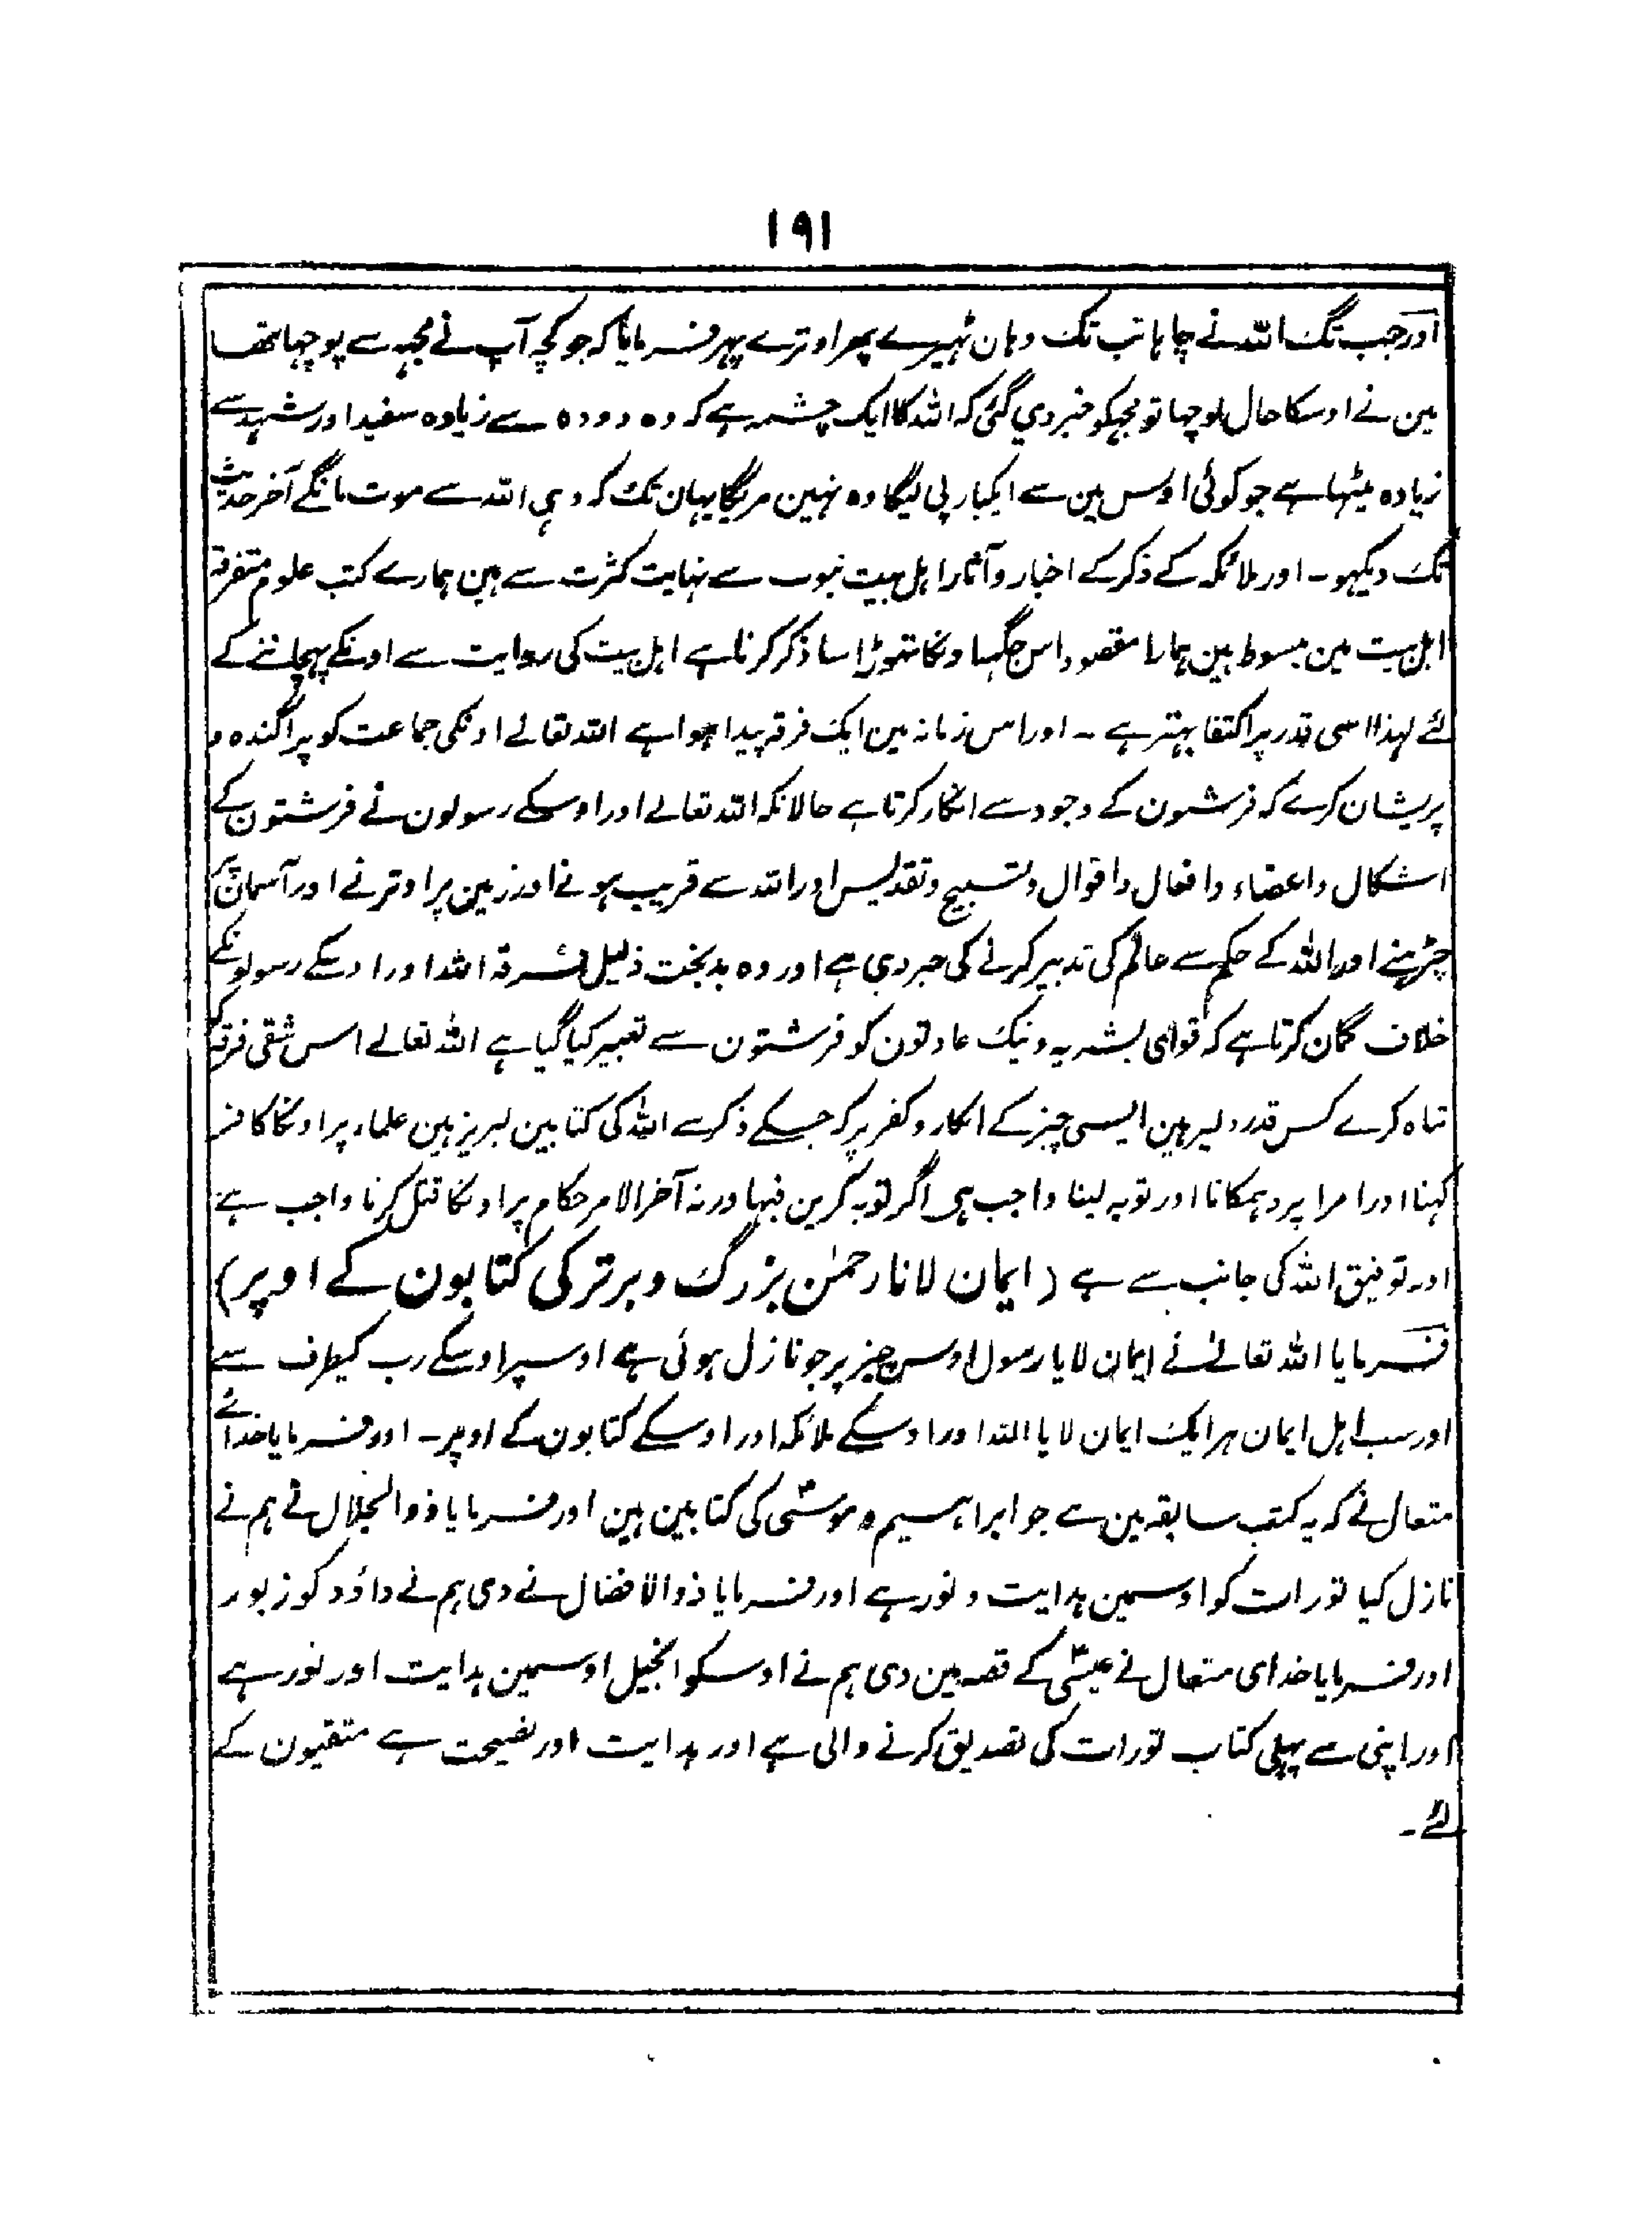 ۱۹۱
اور جب تک اللہ نے چاہا تب تک وہان ٹہیرے پھر اوترے پہر فرمایا کہ جو کچہ آپ نے مجہہ سے پوچہا تھا
مین نے اوسکا حال پوچہا تو مجہکو خبر دی گئی کہ اللہ کا ایک چشمہ ہے کہ وہ دودہ سے زیادہ سفید اور شہد سے
زیادہ میٹہا ہے جو کوئی اوس مین سے ایکبار پی لیگا وہ نہین مریگا یہان تک کہ وہی اللہ سے موت مانگے آخر حدیث
تک دیکہو۔ اور ملائکہ کے ذکر کے اخبار و آثار اہل بیت نبوت سے نہایت کثرت سے ہین ہمارے کتب علوم متفرقہ
اہل بیت مین مبسوط ہین ہمارا مقصود اس جگہہ اونکا تہوڑا سا ذکر کرنا ہے اہل بیت کی روایت سے اونکے پہچاننے کے
لئے لہذا اسی قدر پر اکتفا بہتر ہے ۔ اور اس زمانہ مین ایک فرقہ پیدا ہوا ہے اللہ تعالے اونکی جماعت کو پراگندہ و
پریشان کرے کہ فرشتون کے وجود سے انکار کرتا ہے حالانکہ اللہ تعالے اور اوسکے رسولون نے فرشتون کے
اشکال و اعضاء و افعال و اقوال و تسبیح و تقدیس اور اللہ سے قریب ہونے اور زمین پر اوترنے اور آسمان پر
چڑہنے اور اللہ کے حکم سے عالم کی تدبیر کرنے کی خبر دی ہے اور وہ بدبخت ذلیل فرقہ اللہ اور اوسکے رسولونکے
خلاف گمان کرتا ہے کہ قوای بشریہ و نیک عادتون کو فرشتون سے تعبیر کیا گیا ہے اللہ تعالے اس شقی فرقہ کو
تباہ کرے کس قدر دلیر ہین ایسی چیز کے انکار و کفر پر کہ جسکے ذکر سے اللہ کی کتابین لبریز ہین علماء پر اونکا کافر
کہنا اور امرا پر دہمکانا اور توبہ لینا واجب ہی اگر توبہ کرین فبہا ورنہ آخر الامر حکام پر اونکا قتل کرنا واجب ہے
اور توفیق اللہ کی جانب سے ہے (ایمان لانا رحمٰن بزرگ و برتر کی کتابون کے اوپر)
فرمایا اللہ تعالےٰ نے ایمان لایا رسول اوس چیز پر جو نازل ہوئی ہے اوسپر اوسکے رب کیطرف سے
اور سب اہل ایمان ہر ایک ایمان لایا اللہ اور اوسکے ملائکہ اور اوسکے کتابون کے اوپر۔ اور فرمایا خدائے
متعال نے کہ یہ کتب سابقہ مین سے جو ابراہیم و موسٰی کی کتابین ہین اور فرمایا ذوالجلال نے ہم نے
نازل کیا تورات کو اوسمین ہدایت و نور ہے اور فرمایا ذوالافضال نے دی ہم نے داؤد کو زبور
اور فرمایا خدای متعال نے عیسٰی کے قصہ مین دی ہم نے اوسکو انجیل اوسمین ہدایت اور نور ہے
اور اپنی سے پہلی کتاب تورات کی تصدیق کرنے والی ہے اور ہدایت اور نصیحت ہے متقیون کے
لئے۔